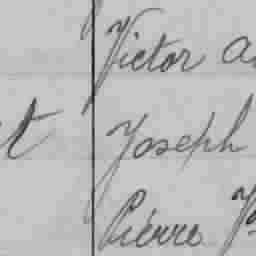 Victor
Joseph
Pierre